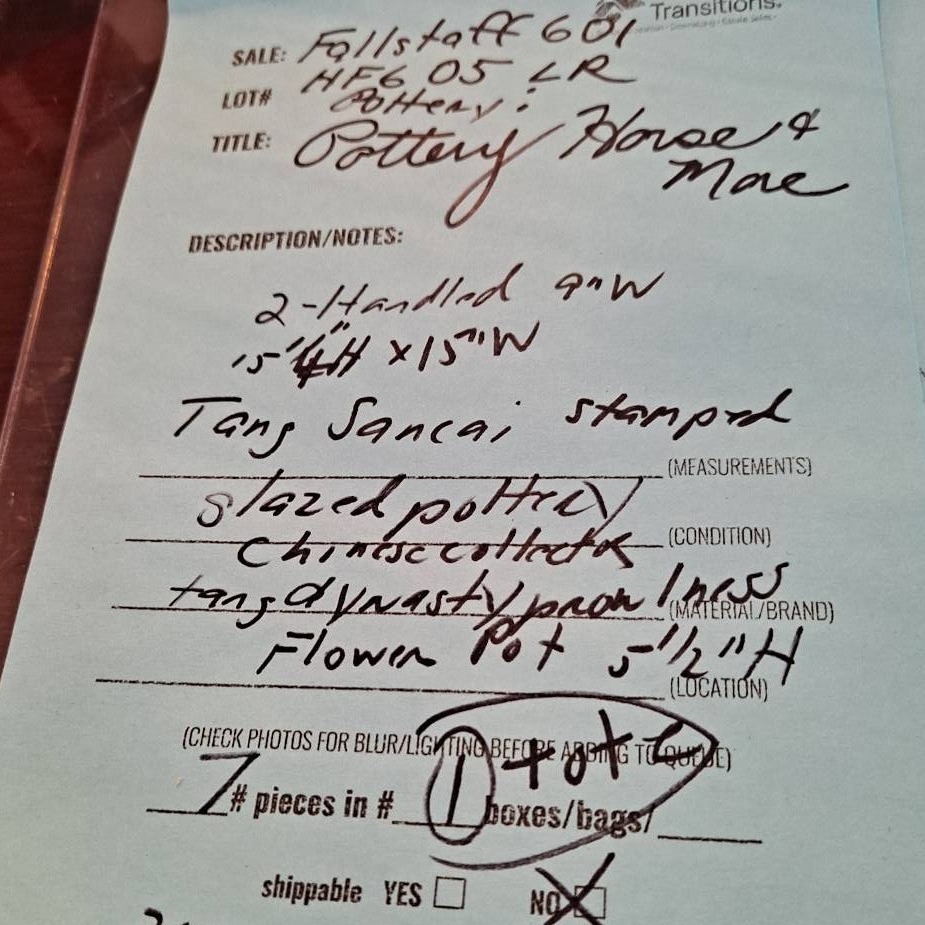 Transitions.
SALE: Fallstaff 601
LOT# HF605 LR
Pottery:
TITLE: Pottery Horse &
More
DESCRIPTION/NOTES:
2-Handled 9"W
15" H x 15" W
Tang Sancai stamped
(MEASUREMENTS)
glazed pottery
(CONDITION)
Chinese collector
tang dynasty
(MATERIAL/BRAND)
Flower Pot 5 1/2" H
(LOCATION)
(CHECK PHOTOS FOR BLUR/LIGHTING BEFORE ADDING TO QUEUE)
7 # pieces in # 1 boxes/bags/ tote
shippable YES NO